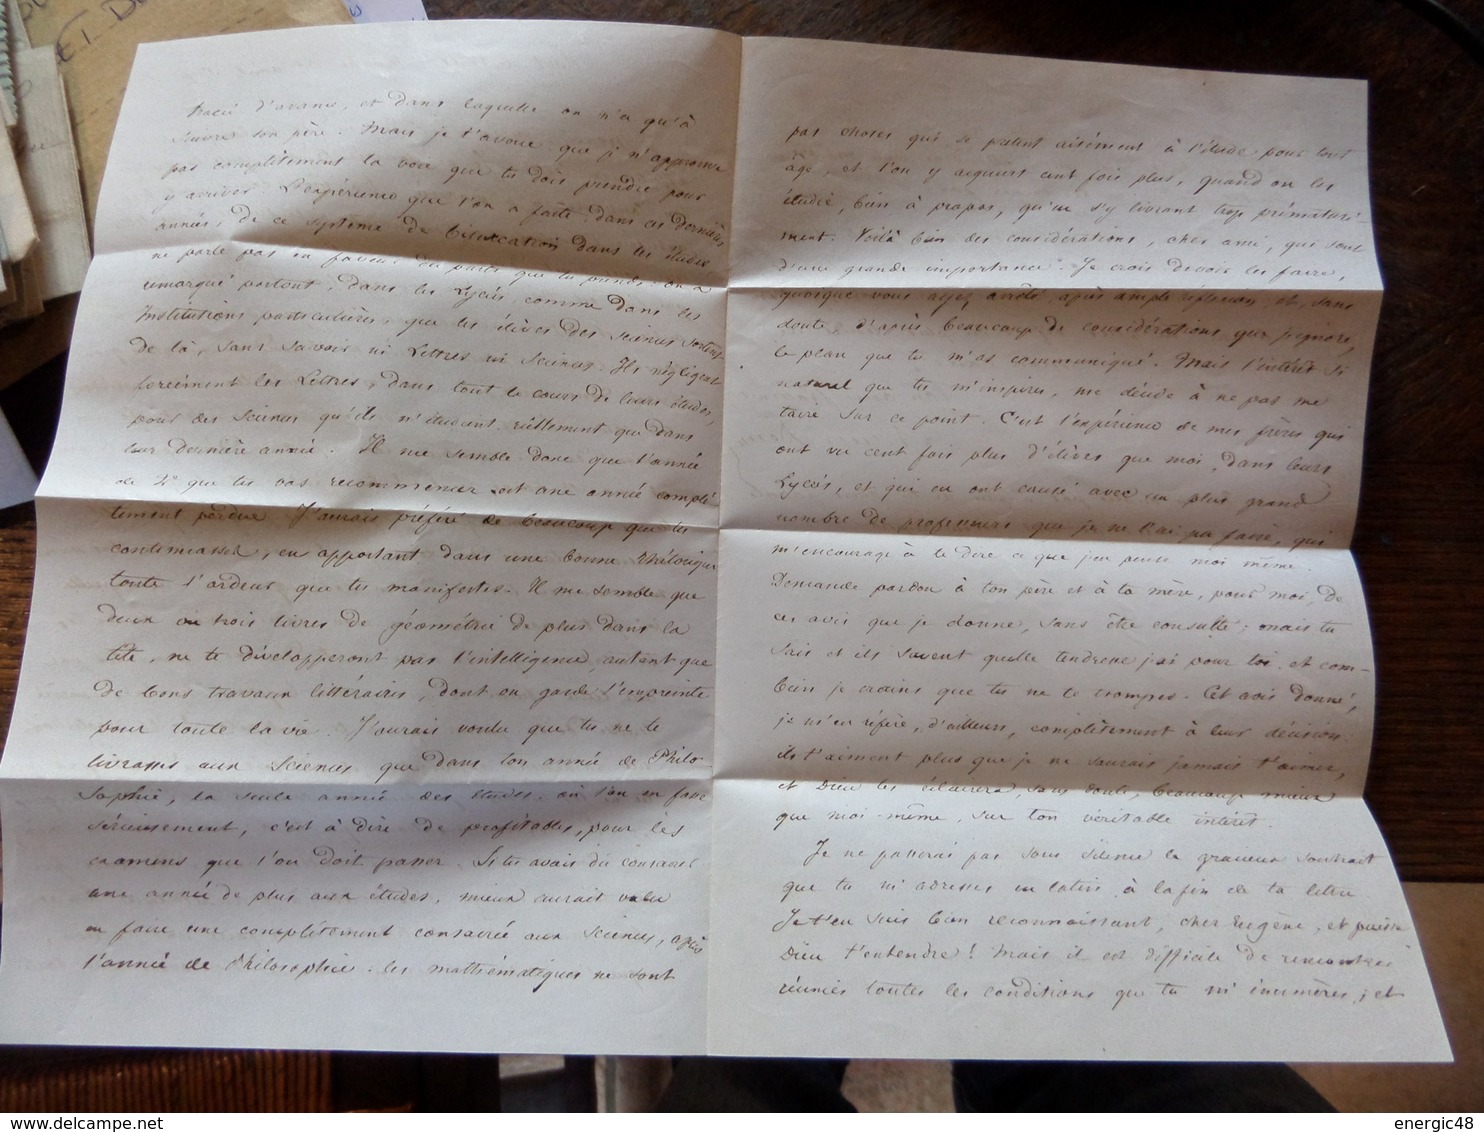 tracé d'avance, et dans laquelle on n'a qu'à
suivre son père. Mais je t'avoue que je n'approuve
pas complètement la voie que tu dois prendre pour
y arriver. L'expérience que l'on a faite, dans ces dernières
années, de ce système de bifurcation dans les études
ne parle pas en faveur du parti que tu prends. On a
remarqué partout, dans les Lycées, comme dans les
Institutions particulières, que les élèves des Sciences sortent
de là, sans savoir ni Lettres ni Sciences. Ils négligent
forcément les Lettres, dans tout le cours de leurs études,
pour des Sciences qu'ils n'étudient réellement que dans
leur dernière année. Il me semble donc que l'année
de 2e que tu vas recommencer est une année complè-
tement perdue. J'aurais préféré de beaucoup que tu
continuasses, en apportant dans une bonne rhétorique
toute l'ardeur que tu manifestes. Il me semble que
deux ou trois livres de géométrie de plus dans la
tête, ne te développeront pas l'intelligence, autant que
de bons travaux littéraires, dont on garde l'empreinte
pour toute la vie. J'aurais voulu que tu ne te
livrasses aux Sciences que dans ton année de Philo-
sophie, la seule année des études où l'on en fasse
sérieusement, c'est à dire de profitables, pour les
examens que l'on doit passer. Si tu avais dû consacrer
une année de plus aux études, mieux aurait valu
en faire une complètement consacrée aux Sciences, après
l'année de Philosophie : les mathématiques ne sont
pas choses qui se prêtent aisément à l'étude pour tout
âge, et l'on y acquiert cent fois plus, quand on les
étudie, bien à propos, qu'en s'y livrant trop prématuré-
ment. Voilà bien des considérations, cher ami, qui sont
d'une grande importance. Je crois devoir les faire,
quoique vous ayez arrêté, après ample réflexion, et, sans
doute, d'après beaucoup de considérations que j'ignore,
le plan que tu m'as communiqué. Mais l'intérêt si
naturel que tu m'inspires, me décide à ne pas me
taire sur ce point. C'est l'expérience de mes frères qui
ont vu cent fois plus d'élèves que moi, dans leurs
Lycées, et qui en ont causé avec un plus grand
nombre de professeurs que je ne l'ai pu faire, qui
m'encourage à te dire ce que j'en pense moi même.
Demande pardon à ton père et à ta mère, pour moi, de
ces avis que je donne, sans être consulté ; mais tu
sais et ils savent quelle tendresse j'ai pour toi, et com-
bien je crains que tu ne te trompes. Cet avis donné,
je m'en réfère, d'ailleurs, complètement à leur décision :
ils t'aiment plus que je ne saurais jamais t'aimer,
et Dieu les éclairera, sans doute, beaucoup mieux
que moi-même, sur ton véritable intérêt.
Je ne passerai pas sous silence le gracieux souhait
que tu m'adresses en latin à la fin de ta lettre
Je t'en suis bien reconnaissant, cher Eugène, et puisse
Dieu t'entendre ! Mais il est difficile de rencontrer
réunies toutes les conditions que tu m'énumères ; et
energic48